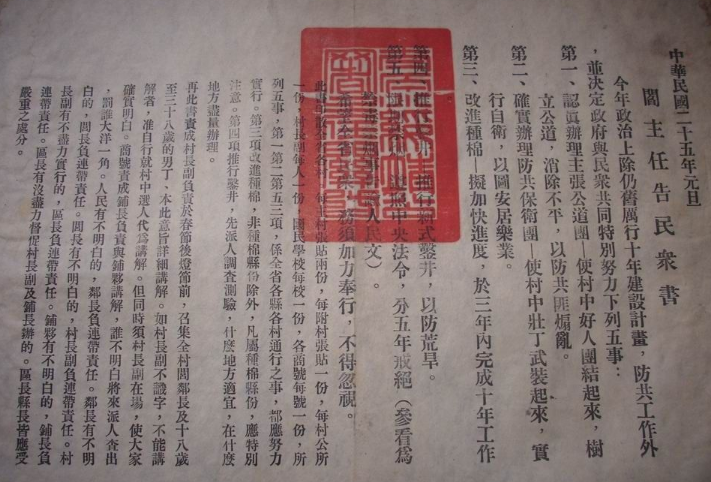 中華民國二十五年元旦
閻主任告民衆書
今年政治上除仍舊厲行十年建設計畫,防共工作外
,並決定政府與民衆共同特別努力下列五事:
第一、認眞辦理主張公道團—使村中好人團結起來,樹
立公道,消除不平,以防共匪煽亂。
第二、確實辦理防共保衞團—使村中壯丁武裝起來,實
行自衞,以圖安居樂業。
第三、改進種棉—擬加快進度,於三年內完成十年工作
第四、推行鑿井—推行新式鑿井,以防荒旱。
第五、遵照中央法令,分五年戒絕(參看爲
告人民文)。
務須加力奉行,不得忽視。
每主村張貼兩份,每附村張貼一份,每村公所
一份,村長副每人一份,國民學校每校一份,各商號每號一份,所
列五事,第一第二第五三項,係全省各縣各村通行之事,都應努力
實行。第三項改進種棉,非種棉縣份除外,凡屬種棉縣份,應特別
注意。第四項推行鑿井,先派人調查測驗,什麽地方適宜,在什麽
地方盡量辦理。
再此書責成村長副負責於春節後燈節前,召集全村閭鄰長及十八歲
至三十八歲的男丁、本此意旨詳細講解。如村長副不識字,不能講
解者,准自行就村中選人代爲講解。但同時須村長副在場,使大家
確實明白。商號責成舖長負責與舖夥講解,誰不明白將來派人查出
,罰誰大洋一角。人民有不明白的,鄰長負連帶責任。鄰長有不明
白的,閭長負連帶責任。閭長有不明白的,村長副負連帶責任。村
長副有不盡力實行的,區長負連帶責任。舖夥有不明白的,舖長負
連帶責任。區長有沒盡力督促村長副及舖長辦的。區長縣長皆應受
嚴重之處分。